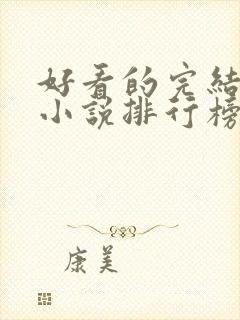 好看的完結
小說排行榜
康美